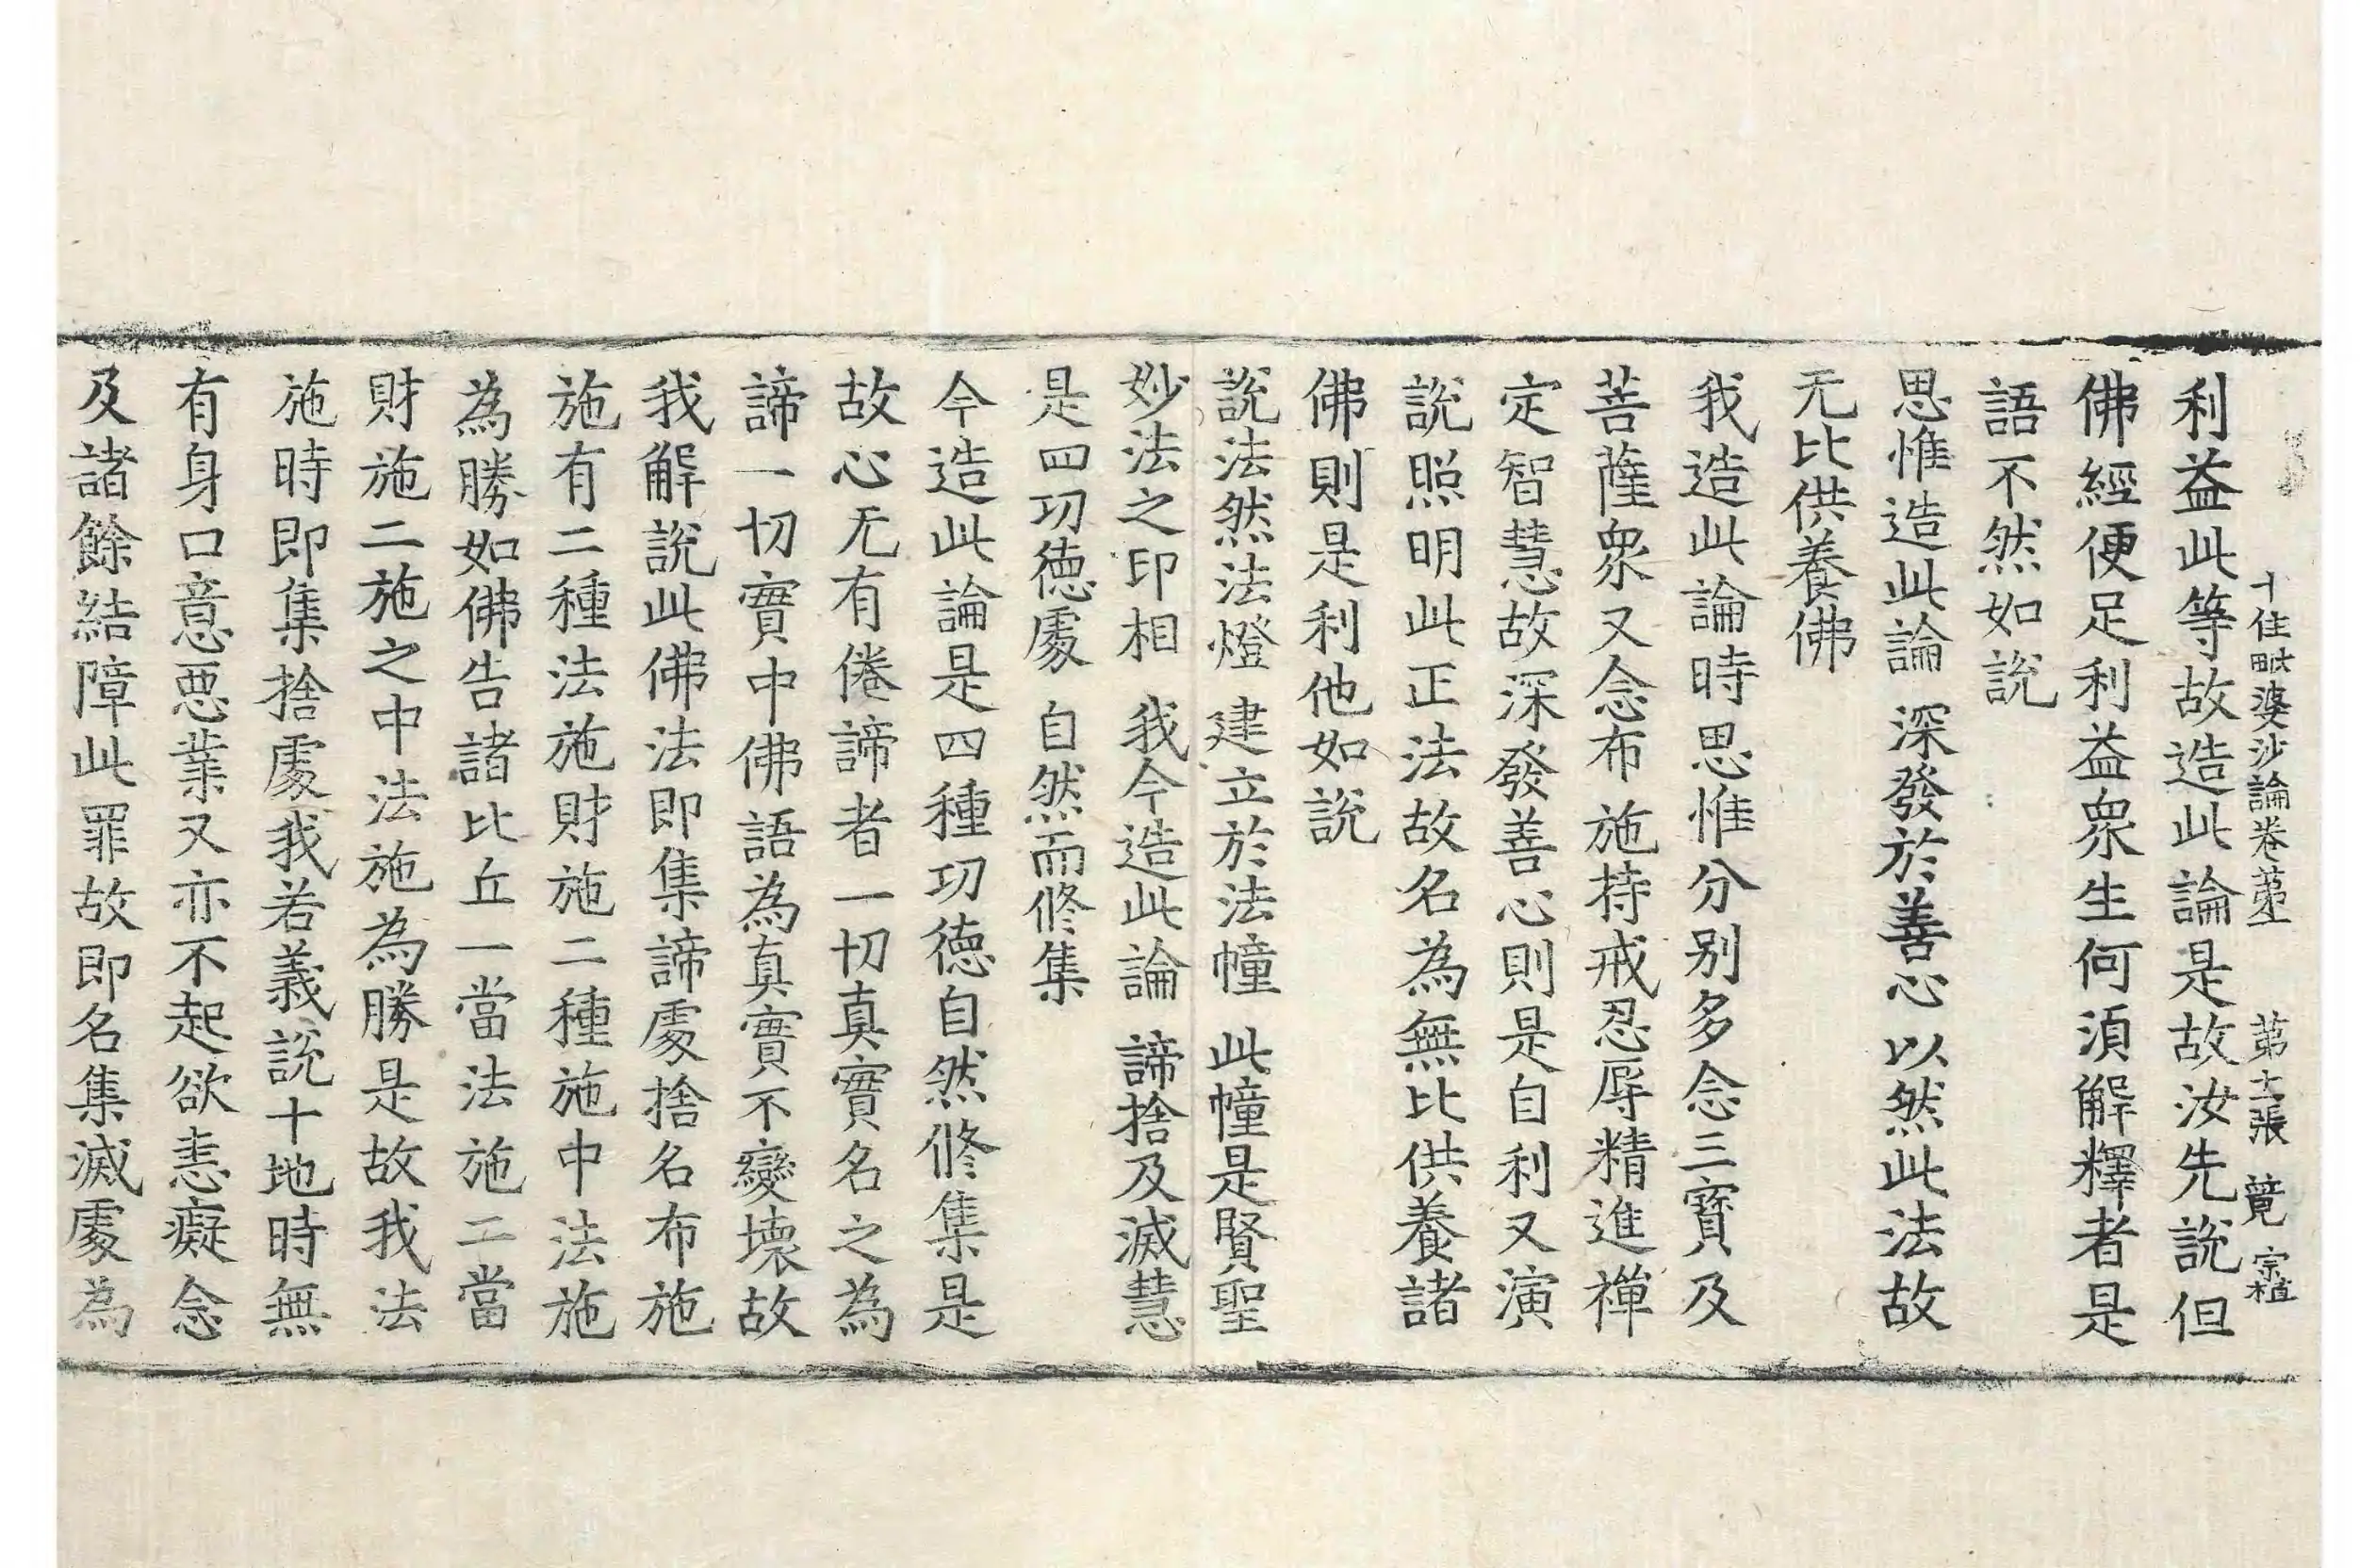 十住毗婆沙論卷苐一 苐十二張 竟 宗植
利益此等故造此論是故汝先說但
佛經便足利益眾生何湏解釋者是
語不然如說
思惟造此論 深發於善心 以然此法故
无比供養佛
我造此論時思惟分别多念三寳及
菩薩眾又念布施持戒忍辱精進禅
定智慧故深發善心則是自利又演
說照明此正法故名為無比供養諸
佛則是利他如說
說法然法燈 建立於法幢 此幢是賢聖
妙法之印相 我今造此論 諦捨及滅慧
是四功徳處 自然而脩集
今造此論是四種功徳自然脩集是
故心无有倦諦者一切真實名之為
諦一切實中佛語為真實不變壞故
我解說此佛法即集諦處捨名布施
施有二種法施財施二種施中法施
為勝如佛告諸比丘一當法施二當
財施二施之中法施為勝是故我法
施時即集捨處我若義說十地時無
有身口意惡業又亦不起欲恚癡念
及諸餘結障此罪故即名集滅處為